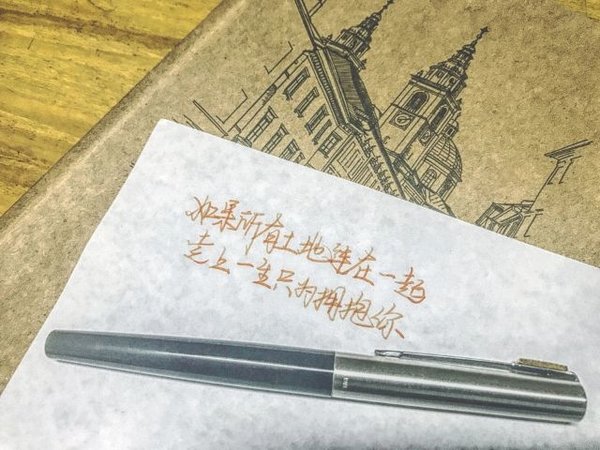 如果所有土地连在一起
走上一生只为拥抱你